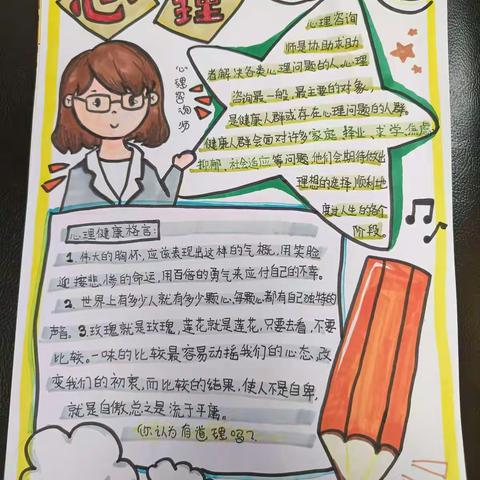 心理
心理咨询师
心理咨询
师是协助求助
者解决各类心理问题的人。心理
咨询最一般、最主要的对象，
是健康人群或存在心理问题的人群。
健康人群会面对许多家庭、择业、求学、焦虑、
抑郁、社会适应等问题，他们会期待做出
理想的选择，顺利地
度过人生的各个
阶段。
心理健康格言：
1. 伟大的胸怀，应该表现出这样的气概，用笑脸
迎接悲惨的命运，用百倍的勇气来应付自己的不幸。
2. 世界上有多少人就有多少颗心，每颗心都有自己独特的
声音。3. 玫瑰就是玫瑰，莲花就是莲花，只要去看，不要
比较。一味的比较最容易动摇我们的心态，改
变我们的初衷，而比较的结果，使人不是自卑，
就是自傲，总之是流于平庸。
你认为有道理吗？